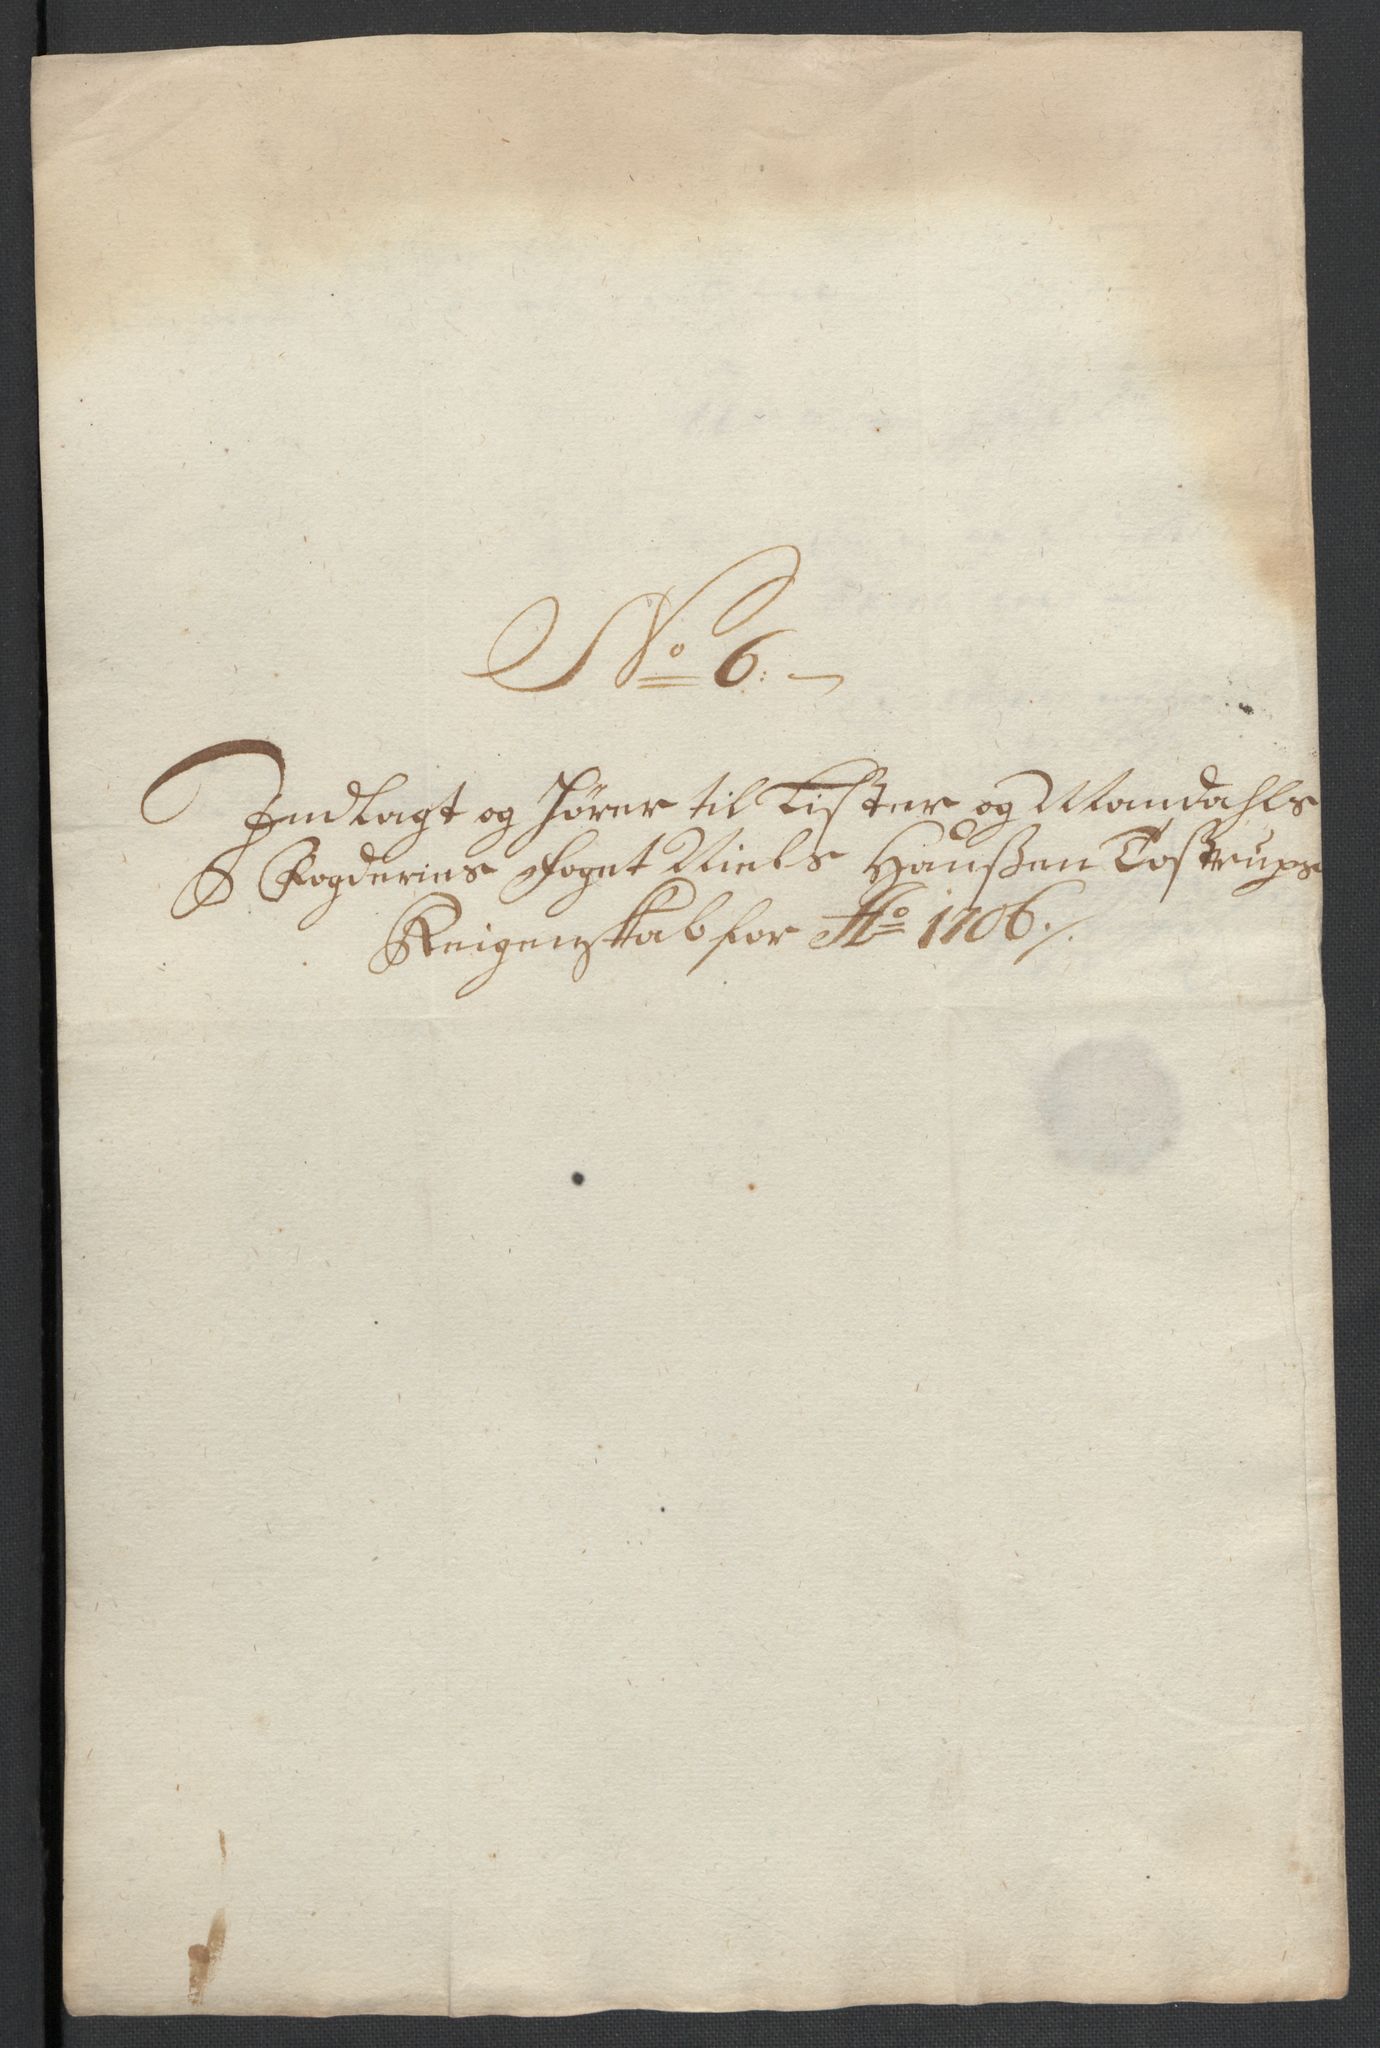 No 6.
Indlagt og hörer til Lister og Mandahls
Fogderies Foget Niels Hanßen Tostrups
Reigenskab for Ao 1706 ./.